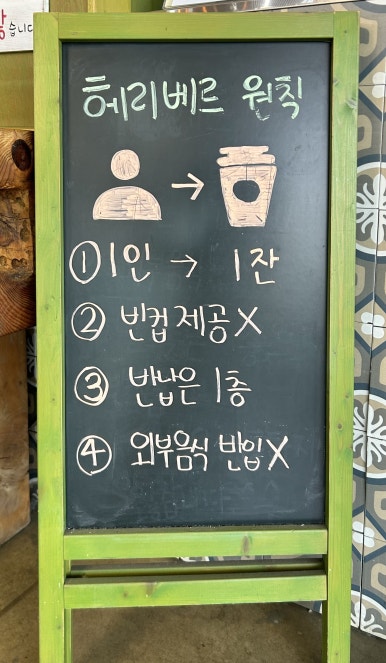 습니다
헤리베르 원칙
→
① 1인 → 1잔
② 빈컵 제공 X
③ 반납은 1층
④ 외부음식 반입 X